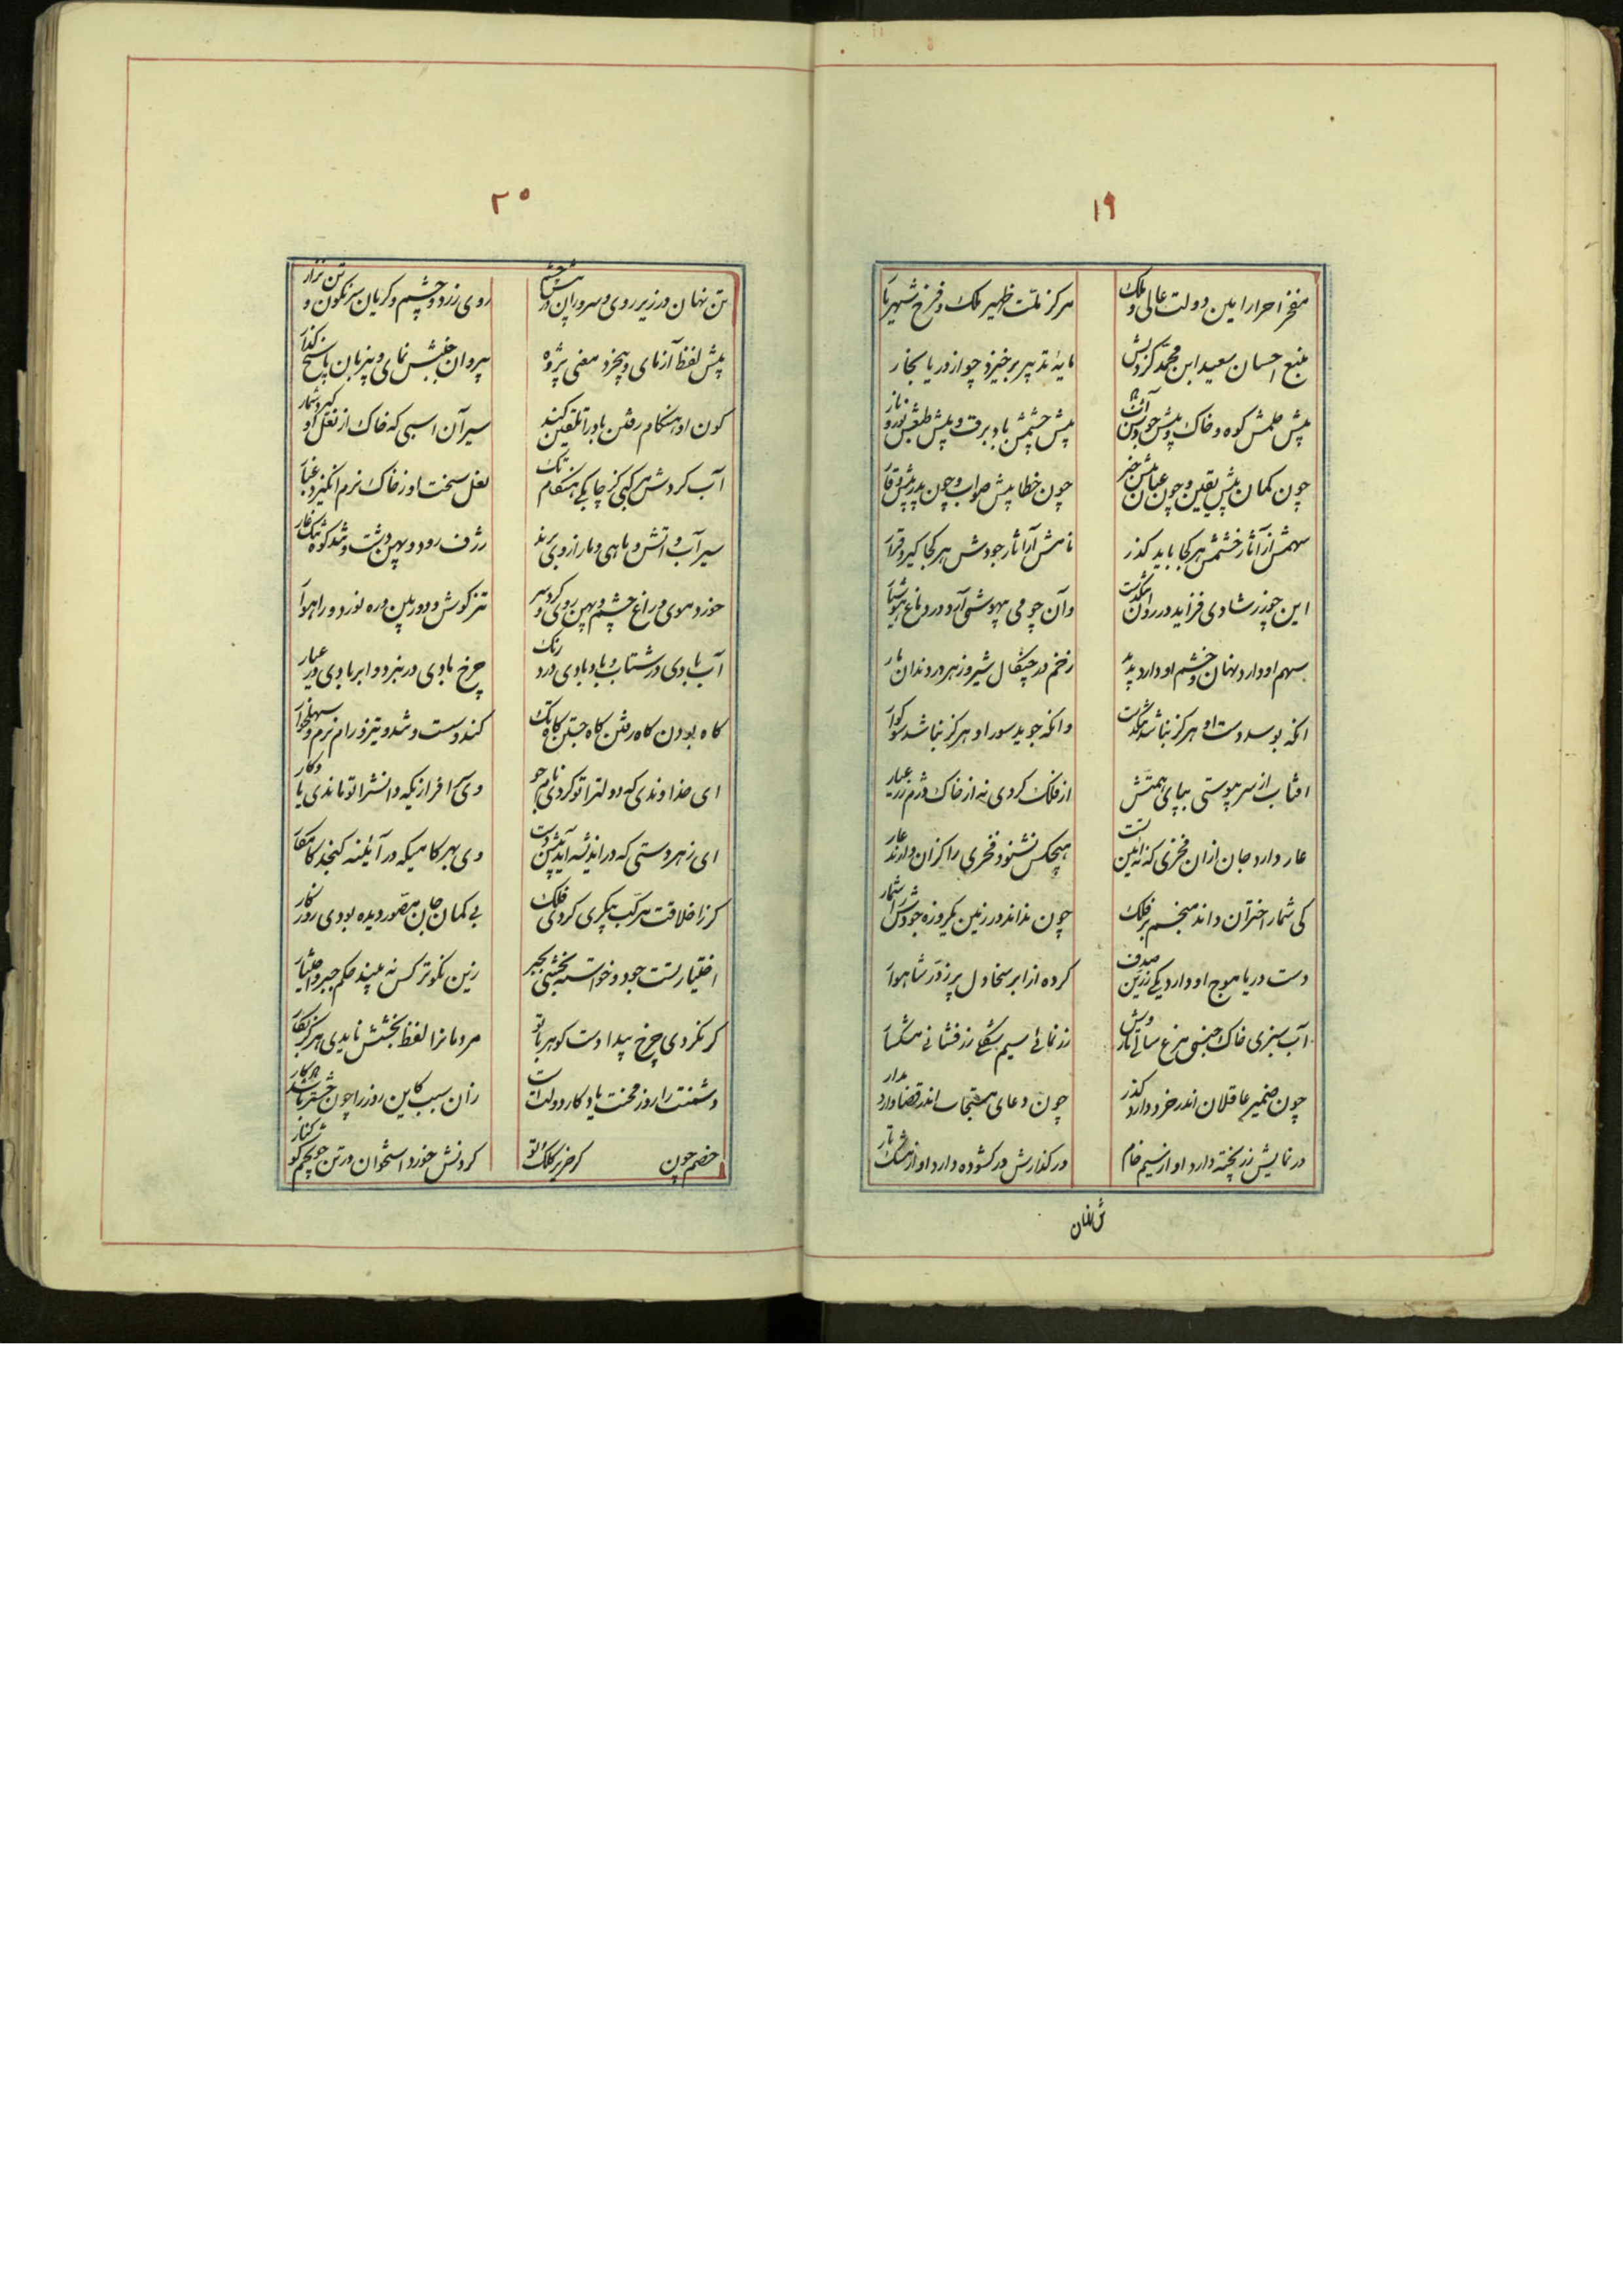 ۱۹
مفخر احرار امین دولت عالی و ملک
مرکز ملت ظهیر ملک و فرخ شهریار
منبع احسان سعید ابن محمد کز دلش
مایه تدبیر برخیزد چو از دریا بخار
پیش حلمش کوه و خاک و پیش جودش
پیش خشمش باد و برق و پیش طبعش نور و نار
چون کمان پیش یقین و چون عیان پیش خبر
چون خطا پیش صواب و چون پدر پیش وقار
سهمش از آثار خشمش هر کجا یابد گذر
نامش از آثار جودش هر کجا گیرد قرار
این چو زر شادی فزاید در دل
وآن چو می بیهوشی آرد در دماغ هوشیار
سهم او دارد نهان و خشم او دارد پدید
زخم در چنگال شیر و زهر در دندان مار
انکه بوسد دست او هرگز نباشد تنگدست
وانکه جوید سور او هرگز نباشد سوگوار
افتاب از سر پوستی بپای همتش
از فلک کردی نه از خاک درم زر عیار
عار دارد جان ازان فخری که نه آئین تست
هیچکس نشنود فخری را کزان دارند عار
کی شمار اختران داند منجم بر فلک
چون نداند در زمین یکروزه جودش را شمار
دست دریا موج او دارد یکی زرین صدف
کرده از ابر سخا دل پر ز در شاهوار
آب سیری خاک جنبی مرغ سانی مار وش
زر نمائی سیم شکلی زر فشانی مشکسار
چون ضمیر عاقلان اندر خرد دارد گذر
چون دعای مستجاب اندر قضا دارد مدار
در نمایش زر پخته دارد او از سیم خام
در گذارش در گشوده دارد او از مشک تار
۲۰
تن نهان در زیر روی و سر وران در پیش چشم
روی زرد و چشم گریان سر نگون و تن نزار
پیش لفظ آزمای و بیخرد معنی پژوه
بیروان جنبش نمای و بیزبان پاسخ گذار
چون او هنگام رفتن باد را تلقین کند
سیر آن اسبی که خاک از نعل او گیرد شمار
آب کردش مرکبی کز چابکی هنگام تک
نعل سخت او ز خاک نرم انگیزد غبار
سیر آب و اتش و ماهی و مار ازوی برند
ژرف رود و پهن دشت و تند کوه و تنگ غار
خورد موی و زاغ چشم و پهن روی و گرد سر
تیز گوش و دوربین و ره نورد و راهوار
آب بادی در شتاب و باد بادی در درنگ
چرخ بادی در نبرد و ابر بادی در عیار
گاه بودن گاه رفتن گاه جستن گاه تک
کند و سست و تند و تیز و رام و نرم و سهل و خوار
ای خداوندی که دولترا تو کردی نام جو
وی سر افرازیکه دانشرا تو ماندی یادگار
ای زهر دستی که در اندیشه آید پیش دست
وی بهر کامیکه در آئینه گنجد کامکار
گر ز اخلاقت مرکب پیکری کردی فلک
بی گمان جان مصور دیده بودی روزگار
اختیار تست جود و خواسته بخشی بجبر
زین نکوتر کس نه بیند حکم جبر و اختیار
گر نکردی چرخ پیدا دست گوهر بار تو
مردمانرا لفظ بخشش نایدی هرگز بکار
دشمنت را روز محنت یادگار دولت است
زان سبب کاین روز را چون
خصم چون گر خرپر کلک تو
گردنش خورد استخوان در تن چو پنجم